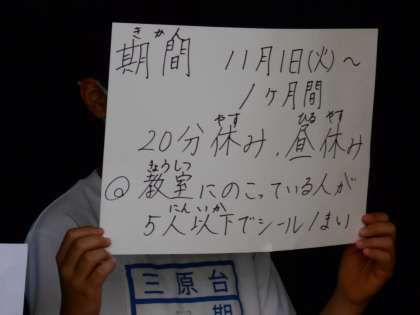 きかん
期間 11月1日(火)～
1ヶ月間
やす ひる やす
20分休み、昼休み
きょうしつ
◎教室にのこっている人が
にん いか
5人以下でシール1まい
三原台
期